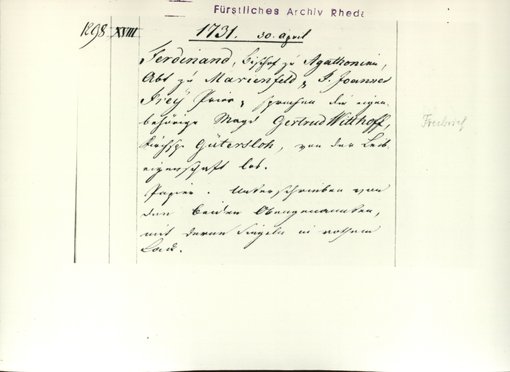 Fürstliches Archiv Rheda
1298 XVIII
1731. 30. April
Ferdinand, Bischof zu Agathonien,
Abt zu Marienfeld, &amp; F. Joannes
Freÿ Prior, sprechen die eigen-
behörige Magd Gertrud Witthoff,
Kirchsp. Gütersloh, von der Leib-
eigenschaft los.
Freibrief
Papier. Unterschrieben von
den beiden Obengenannten,
mit deren Siegeln in rothem
Lack.